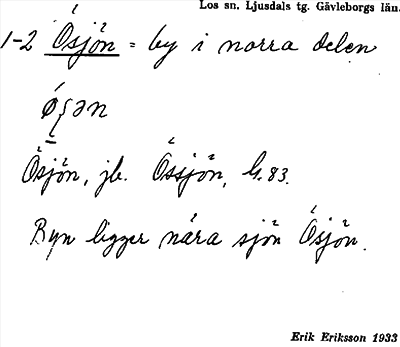 Los sn. Ljusdals tg. Gävleborgs län.
1-2 Ösjön = by i norra delen
Ösjön, jb. Össjön, G. 83.
Byn ligger nära sjön Ösjön.
Erik Eriksson 1933